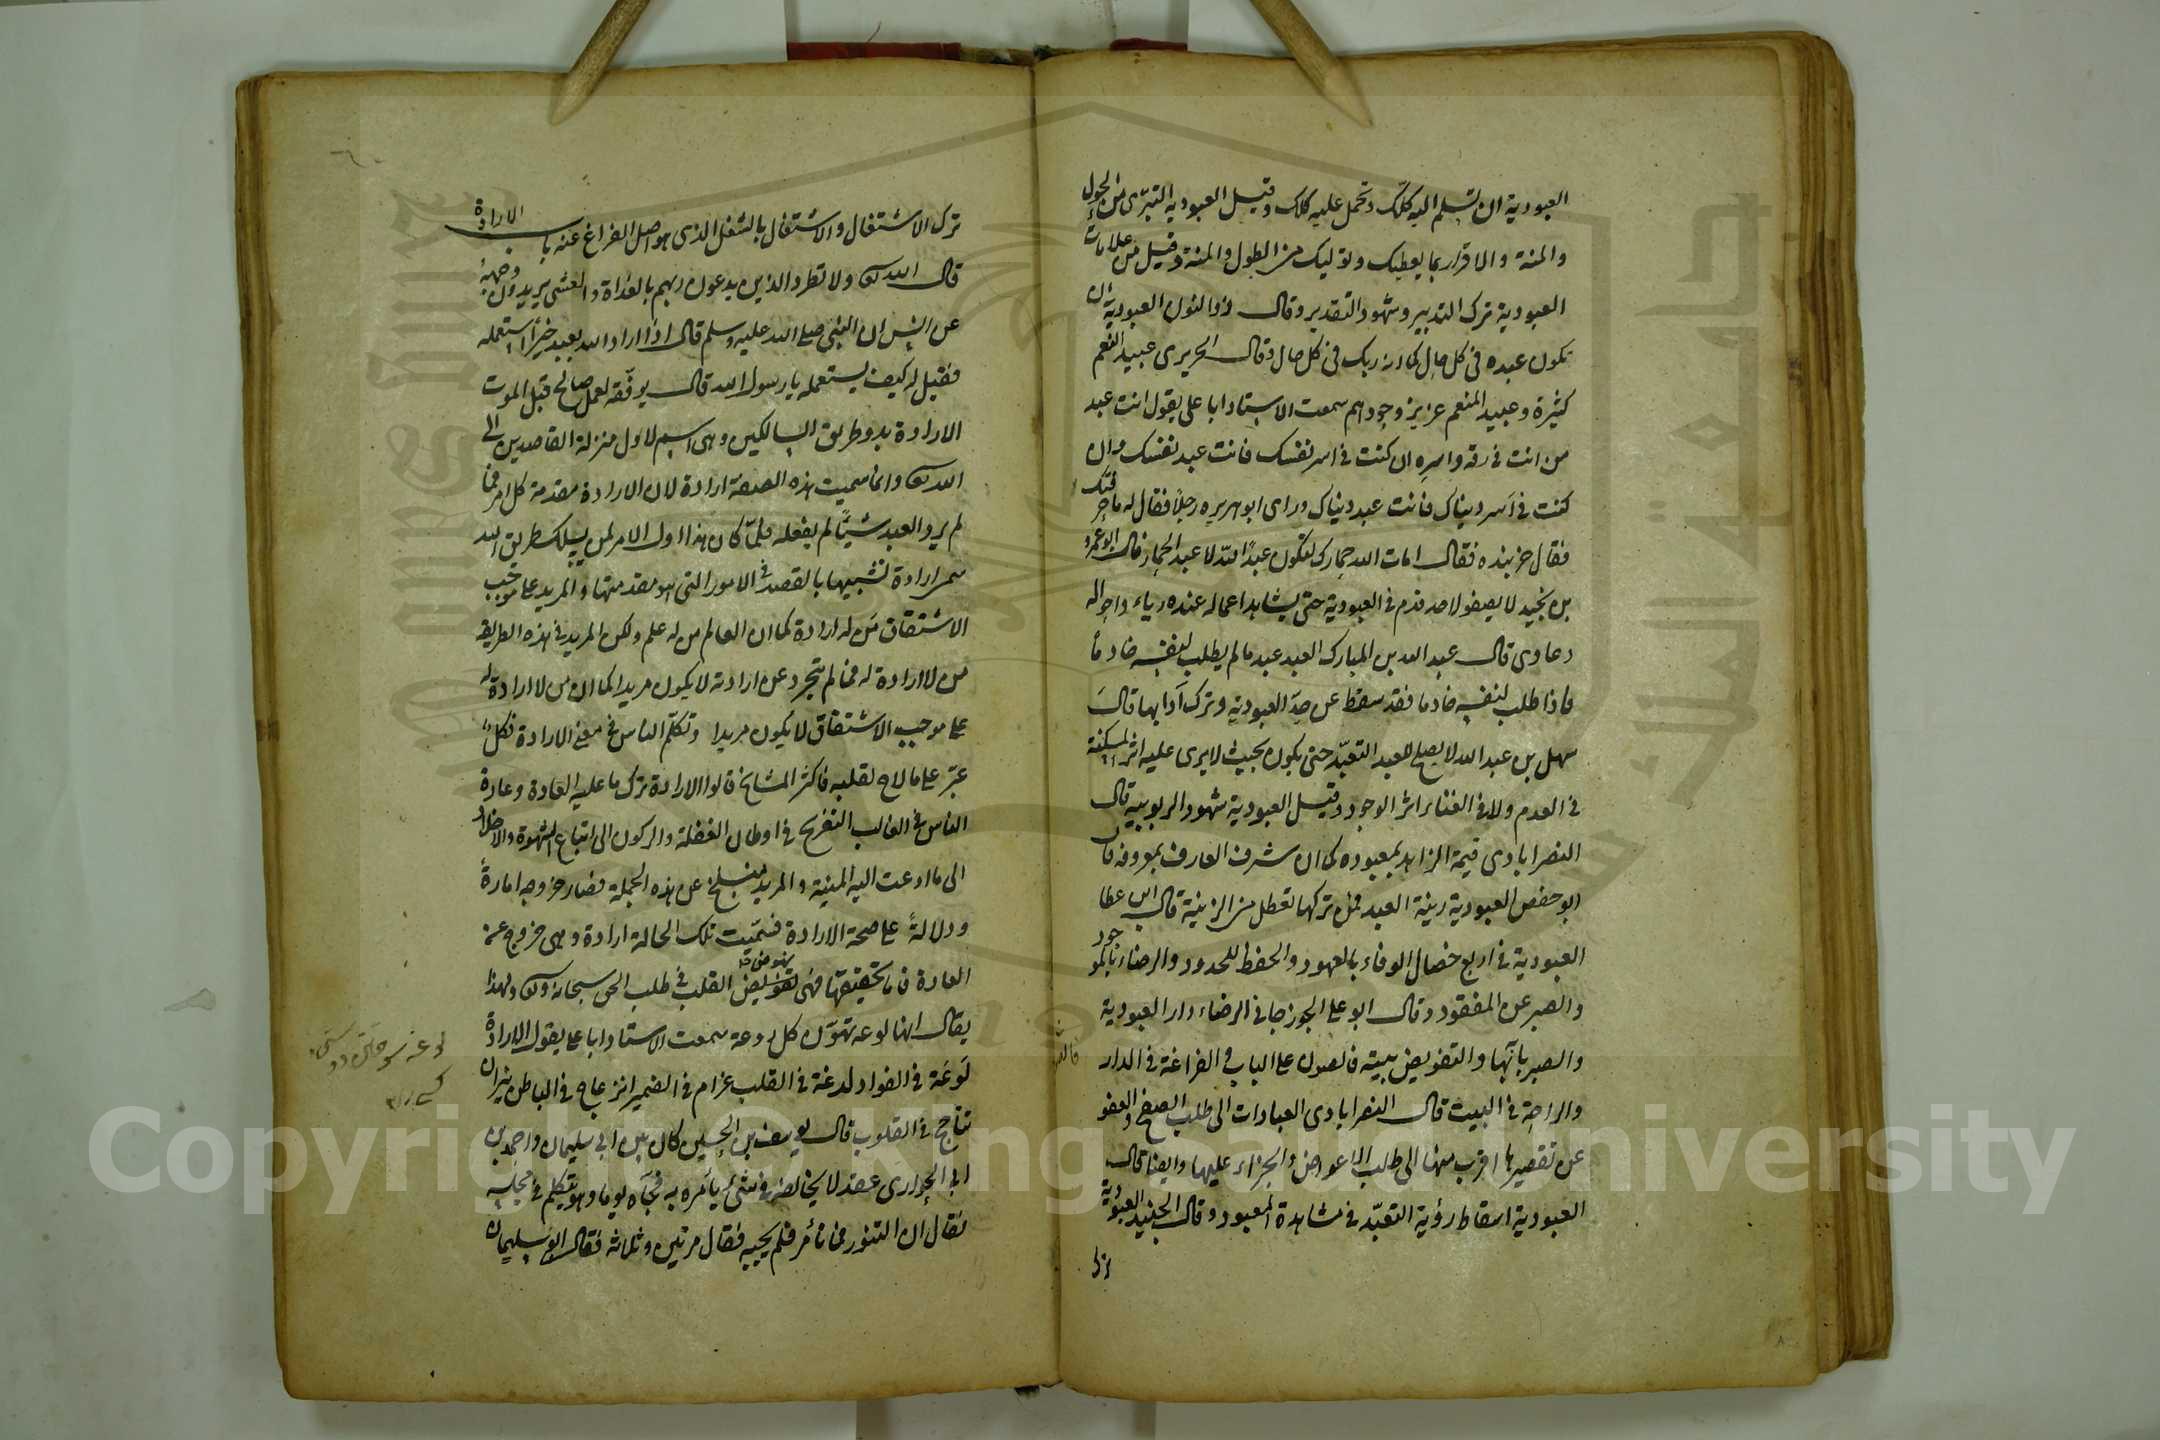 العبودية ان تسلم اليه كلك وتحمل عليه كلك وقيل العبودية التبرى من الحول
والمنة والاقرار بما يعطيك ويوليك من الطول والمنة وقيل من علامات
العبودية ترك التدبير وشهود التقدير وقال ذو النون العبودية ان
تكون عبده فى كل حال كما انه ربك فى كل حال وقال الجريرى عبيد النعم
كثيرة وعبيد المنعم عزيز وجودهم سمعت الاستاد ابا على يقول انت عبد
من انت فى رقه واسره ان كنت فى اسر نفسك فانت عبد نفسك وان
كنت فى اسر دنياك فانت عبد دنياك وراى ابو هريره رجلا فقال له ما حرفتك
فقال خر بنده فقال امات الله حمارك لتكون عبدا لله لا عبد الحمار وقال ابو عمرو
بن نجيد لا يصفو لاحد قدم فى العبودية حتى يشاهد اعماله عنده رياء واحواله
دعاوى قال عبد الله بن المبارك العبد عبد ما لم يطلب لنفسه خادما
فاذا طلب لنفسه خادما فقد سقط عن حد العبودية وترك آدابها قال
سهل بن عبد الله لا يصح للعبد التعبد حتى يكون بحيث لا يرى عليه اثر المسكنة
فى العدم ولا فى الغناء اثر الوجود وقيل العبودية شهود الربوبية قال
النصرابادى قيمة الزاهد بمعبوده كما ان شرف العارف بمعروفه قال
ابو حفص العبودية زينة العبد فمن تركها تعطل من الزينة قال ابن عطا
العبودية فى اربع خصال الوفاء بالعهود والحفظ للحدود والرضاء بالموجود
والصبر عن المفقود وقال ابو على الجوزجانى الرضاء دار العبودية
والصبر بابها والتفويض بيته فالصوت على الباب والفراغة فى الدار
والراحة فى البيت قال النصرابادى العبادات الى طلب الصفح والعفو
عن تقصيرها اقرب منها الى طلب الاعواض والجزاء عليها وايضا قال
العبودية اسقاط رؤية التعبد فى مشاهدة المعبود وقال الجنيد العبودية
ترك
ترك الاشتغال والاشتغال بالشغل الذى هو اصل الفراغ عنه باب الارادة
قال الله تعالى ولا تطرد الذين يدعون ربهم بالغداة والعشى يريدون وجهه
عن انس ان النبى صلى الله عليه وسلم قال اذا اراد الله بعبد خيرا استعمله
فقيل له كيف يستعمله يا رسول الله قال يوفقه لعمل صالح قبل الموت
الارادة بدو طريق السالكين وهى اسم لاول منزلة القاصدين الى
الله تعالى وانما سميت هذه الصفة ارادة لان الارادة مقدمة كل امر فما
لم يرد العبد شيئا لم يفعله فلما كان هذا اول الامر لمن يسلك طريق الله
سمى ارادة تشبيها بالقصد فى الامور التى هو مقدمتها والمريد على موجب
الاشتقاق من له ارادة كما ان العالم من له علم ولكن المريد فى هذه الطريقة
من لا ارادة له فما لم يتجرد عن ارادته لا يكون مريدا كما ان من لا ارادة له
على موجب الاشتقاق لا يكون مريدا وتكلم الناس فى معنى الارادة فكل
عبر على ما لاح لقلبه فاكثر المشايخ قالوا الارادة ترك ما عليه العادة وعادة
الناس فى الغالب التفريج فى اوطان الغفلة والركون الى اتباع الشهوة والاخلاد
الى ما ادعت اليه المنية والمريد منسلخ عن هذه الجملة فصار خروجه امارة
ودلالة على صحة الارادة فسميت تلك الحالة ارادة وهى خروج عن
العادة فاما تحقيقها فهى نهوض القلب فى طلب الحق سبحانه وتعالى ولهذا
يقال انها لوعه تهون كل روعة سمعت الاستاد ابا على يقول الارادة
لوعة فى الفؤاد لدغة فى القلب غرام فى الضمير انزعاج فى الباطن نيران
تتاجج فى القلوب قال يوسف بن الحسين كان بين ابى سليمان واحمد بن
ابى الحوارى عقد لا يخالفه فى شئ يأمره به فجاه يوما وهو يتكلم فى مجلسه
فقال ان التنور فما تأمر فلم يجبه فقال مرتين وثلاثة فقال ابو سليمان
Copyright © King Saud University